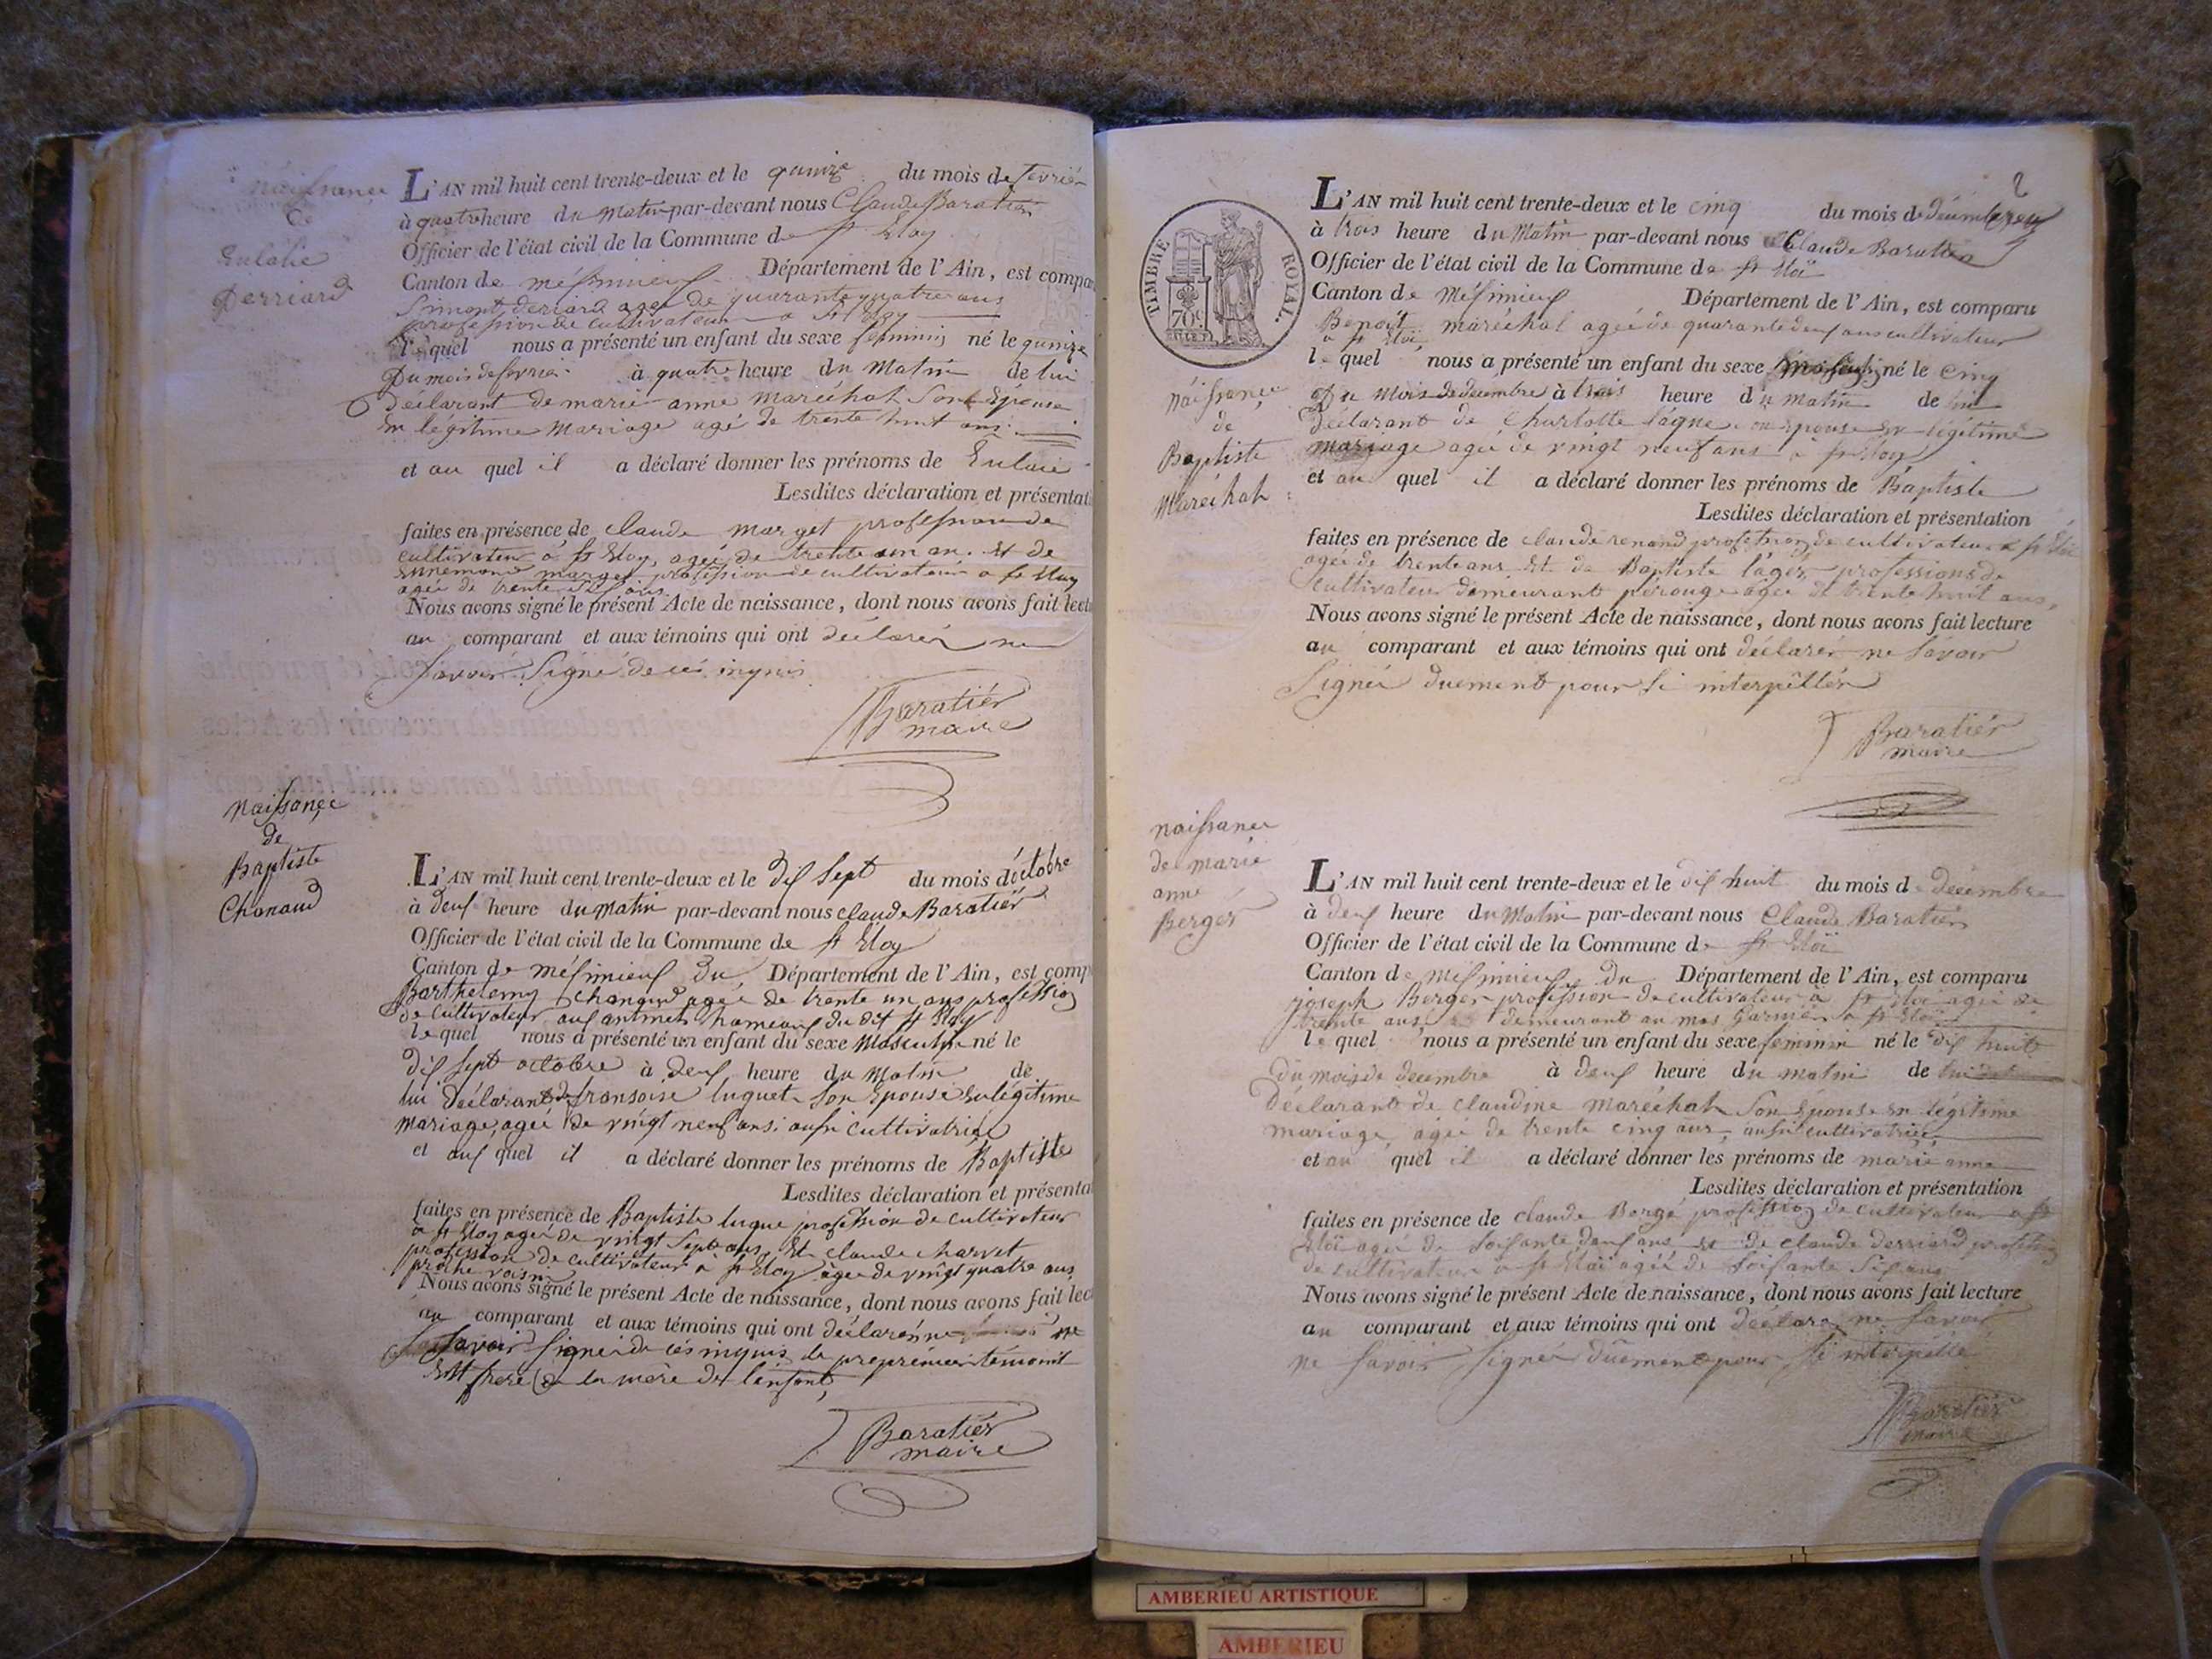 naissance
de
Eulalie
Derriard
L'AN mil huit cent trente-deux et le quinze du mois de fevrier
à quatre heure du Matin par-devant nous Claude Baratier
Officier de l'état civil de la Commune de st Eloy
Canton de méssimieux Département de l'Ain, est compa
Simont derriard ageé de quarante quatre ans
profession de cultivateur a st Eloy
le quel nous a présenté un enfant du sexe feminin né le quinze
Du mois de fevrier à quatre heure du Matin de lui
déclarant de marie anne maréchal Son Epouse
en legitime mariage agé de trente huit ans
et au quel il a déclaré donner les prénoms de
Lesdites déclaration et présentati
faites en présence de Claude marget profession de
cultivateur a st Eloy, ageé de trente un an. Et de
marget profession de cultivateur a st Eloy
ageé de trente ans
Nous avons signé le présent Acte de naissance, dont nous avons fait lectu
au comparant et aux témoins qui ont déclarér ne
savoir Signé de ces
Baratiér
maire
naissançe
de
Baptiste
Chanaud
L'AN mil huit cent trente-deux et le dix sept du mois d'óctobre
à deux heure du matin par-devant nous claude Baratiér
Officier de l'état civil de la Commune de st Eloy
Canton de mésimieux du Département de l'Ain, est comp
Barthelemy chanaud ageé de trente un ans profession
de cultivateur aux hameaux du dit st Eloy
le quel nous a présenté un enfant du sexe Masculin né le
dix sept octobre à deux heure du Matin de
lui déclarant de fransoise luquet son Epouse En légitime
mariage, ageé de vingt neuf ans; aussi cultivatrice
et aux quel il a déclaré donner les prénoms de Baptiste
Lesdites déclaration et présenta
faites en présence de Baptiste luque profession de cultivateur
à st Eloy ageé de vingt Sept ans, Et claude charvet
profession de cultivateur à st Eloy ageé de vingt quatre ans
proche voisin
Nous avons signé le présent Acte de naissance, dont nous avons fait lec
au comparant et aux témoins qui ont déclarér ne
savoir Signér de ces témoint
Est frere de la mère de l'enfant,
Baratiér
maire
2
TIMBRE ROYAL.
70c
L'AN mil huit cent trente-deux et le cinq du mois de décembre
à trois heure du Matin par-devant nous Claude Baratier
Officier de l'état civil de la Commune de st Eloi
Canton de Mésimieux Département de l'Ain, est comparu
Benoît maréchal ageé de quarante deux ans cultivateur
a st Eloi
le quel nous a présenté un enfant du sexe masculin né le cinq
Du Mois de decembre à trois heure du matin de lui
déclarant de Charlotte l'agne Epouse en légitime
mariage ageé de vingt neuf ans à st Eloy
et au quel il a déclaré donner les prénoms de Baptiste
Lesdites déclaration et présentation
naissance
de
Baptiste
Maréchal
faites en présence de claude renand profession de cultivateur a st Eloi
ageé de trente ans Et de Baptiste l'ager professions de
cultivateur demeurant pérouge ageé de trente huit ans,
Nous avons signé le présent Acte de naissance, dont nous avons fait lecture
au comparant et aux témoins qui ont déclarér ne Savoir
Signér duement pour si interpéllér
Baratiér
maire
naissance
de marie
anne
Bergér
L'AN mil huit cent trente-deux et le dix huit du mois de décembre
à deux heure du Matin par-devant nous Claude Baratiér
Officier de l'état civil de la Commune de st Eloi
Canton de Messimieux du Département de l'Ain, est comparu
joseph Berger profession de cultivateur a st Eloi ageé de
trente ans demeurant au mas garnier a st Eloi
le quel nous a présenté un enfant du sexe feminin né le dix huit
du mois de decembre à deux heure du matin de
déclarant de claudine maréchal Son Epouse en légitime
mariage, ageé de trente cinq ans, aussi cultivatrice
et au quel il a déclaré donner les prénoms de marie anne
Lesdites déclaration et présentation
faites en présence de claude Bergé profession de cultivateur a st
Eloi ageé de Soixante deux ans Et de claude derriard profession
de cultivateur a st Eloi ageé de Soixante Six ans
Nous avons signé le présent Acte de naissance, dont nous avons fait lecture
au comparant et aux témoins qui ont déclaré ne savoir
ne savoir Signér duement pour Si interpéllé
Baratiér
maire
AMBERIEU ARTISTIQUE
AMBERIEU